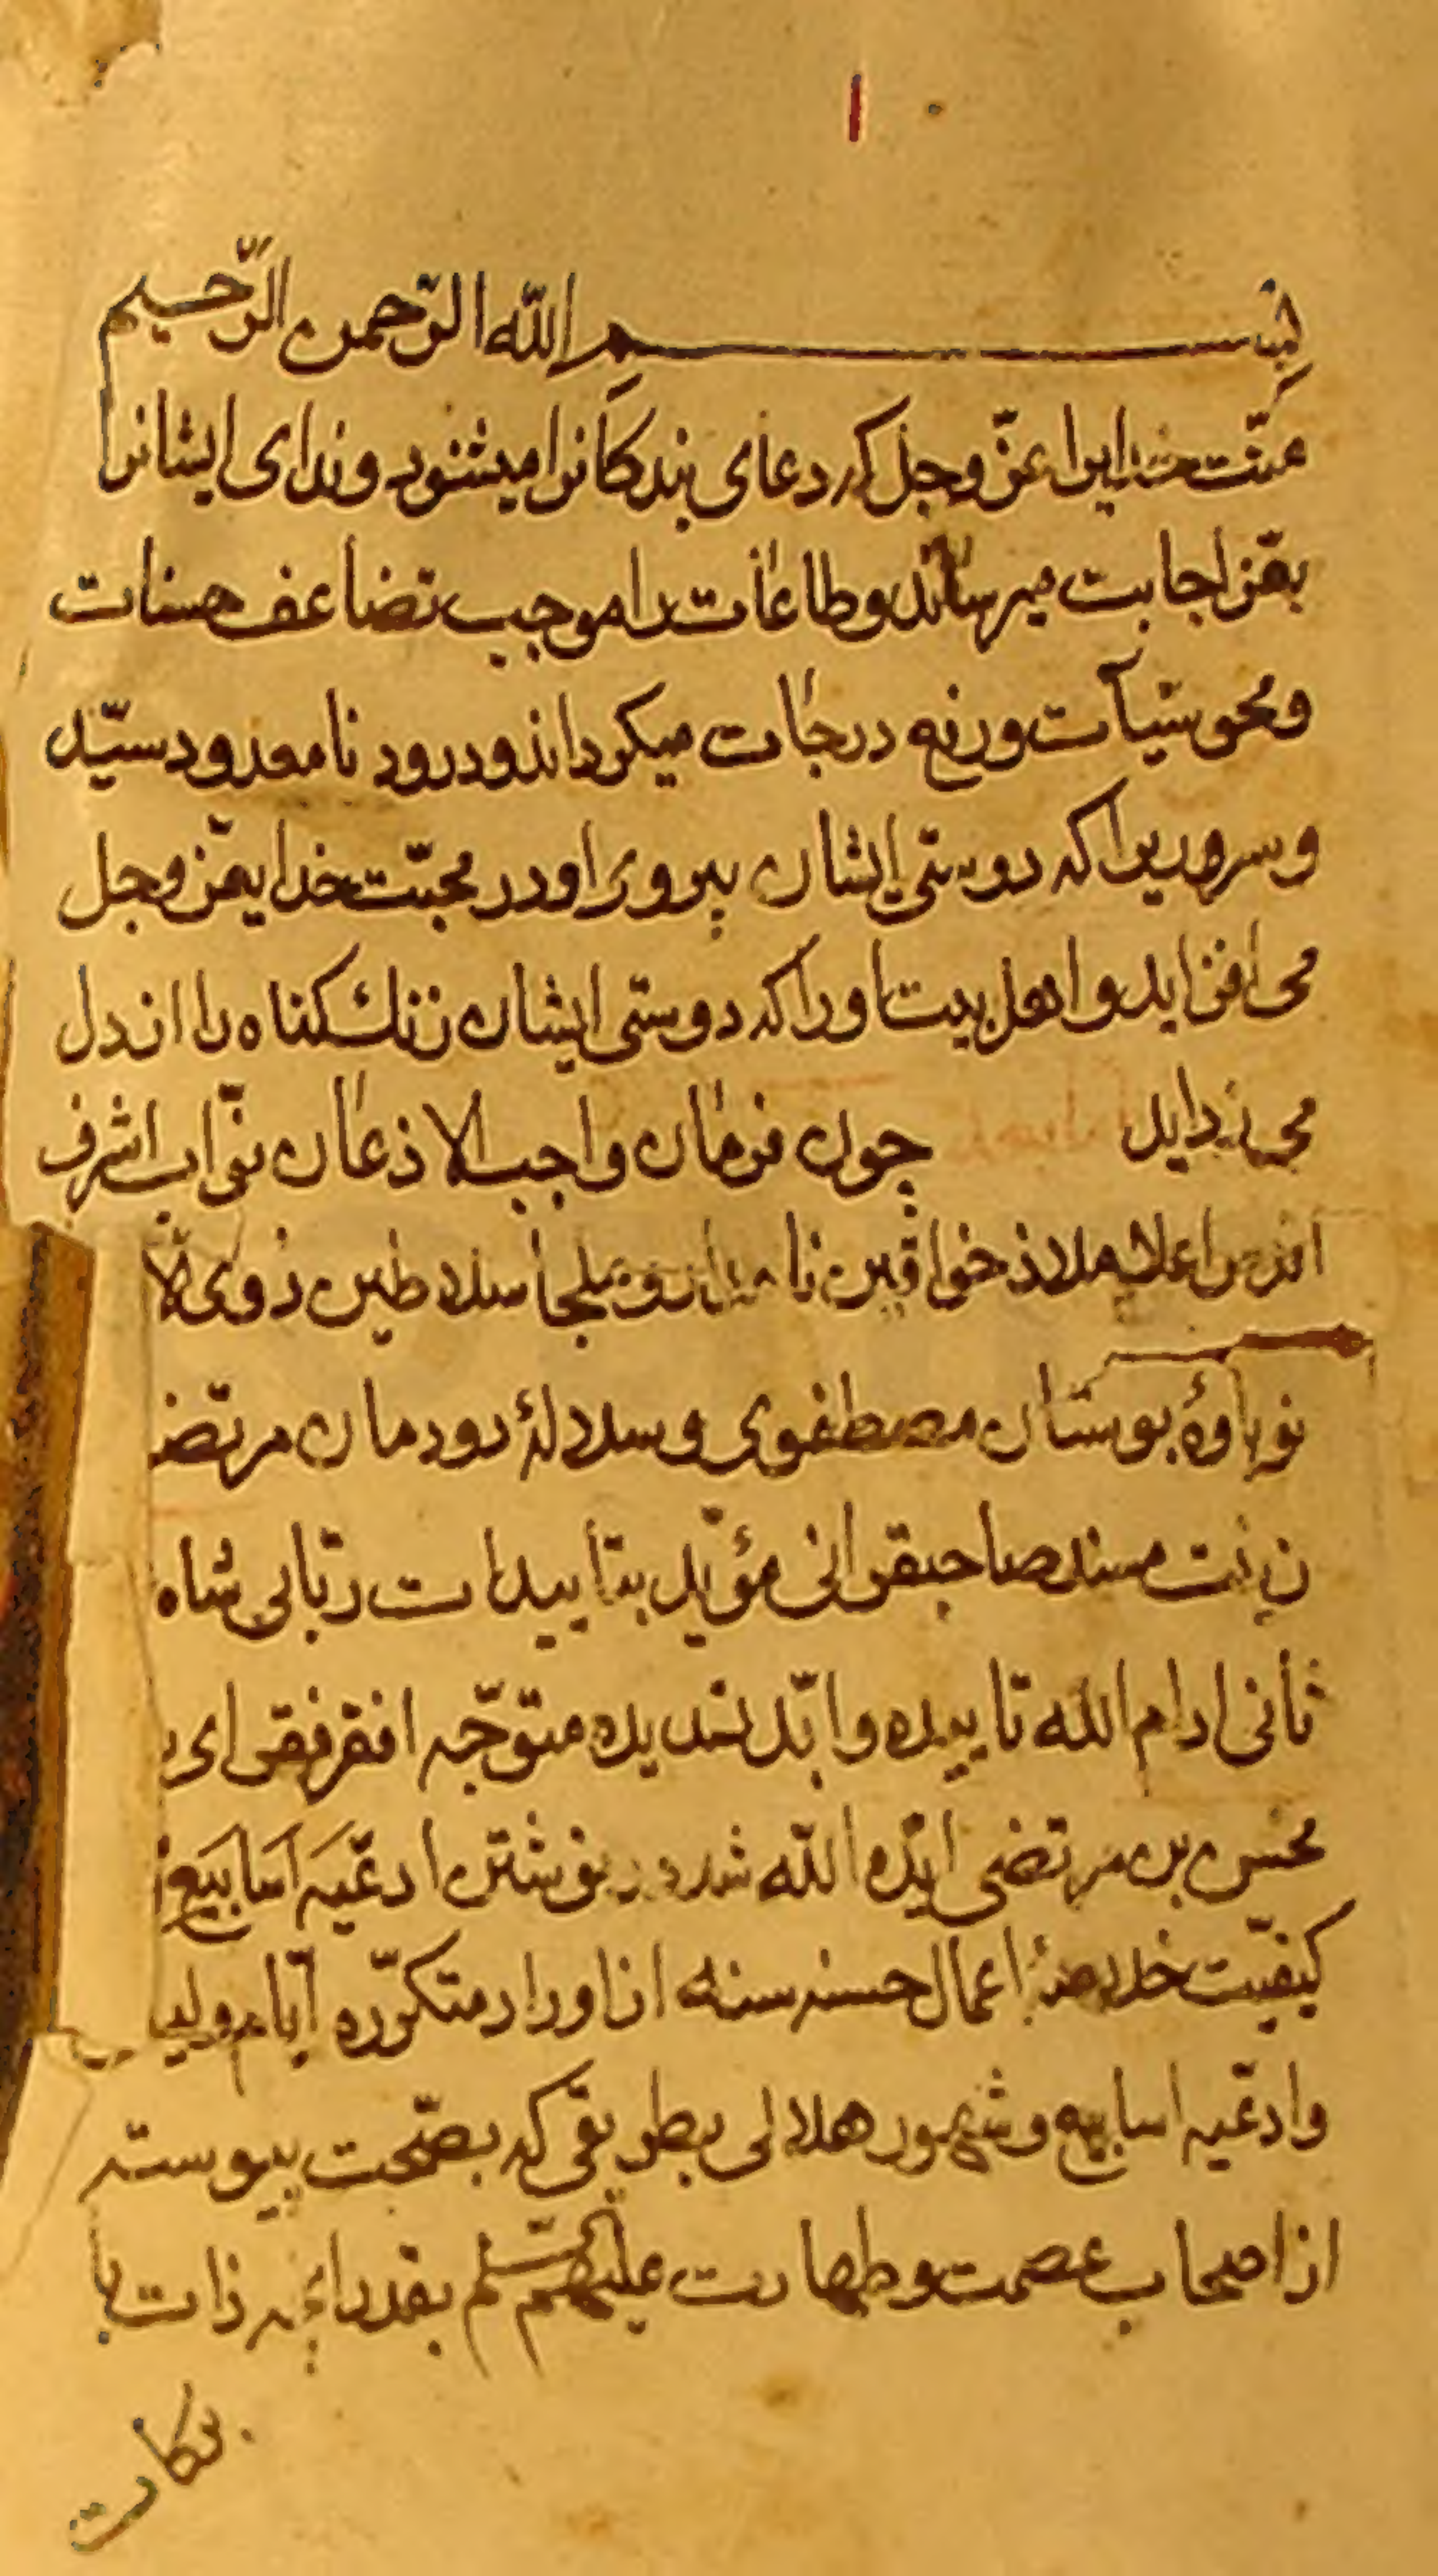 ۱
بسم الله الرّحمن الرّحیم
منّت خدایرا عزّ وجلّ که دعای بندکانرا میشنود وندای ایشانرا
بعزّ اجابت میرساند وطاعات را موجب تضاعف حسنات
ومحو سیّآت ورفع درجات میکرداند ودرود نامعدود سیّد
وسروریرا که دوستی ایشان پیروی او در محبّت خدای عزّ وجل
می افزاید و اهل بیت او را که دوستی ایشان زنك کناه را از دل
می زداید چون فرمان واجب الاذعان نوّاب اشرف
اقدس اعلا ملاذ خواقین نامدار و ملجأ سلاطین ذوی الا
نوباوهٔ بوستان مصطفوی وسلالهٔ دودمان مرتضو
زینت مسند صاحبقرانی مؤیّد بتأییدات ربّانی شاه
ثانی ادام الله تاییده وابّد تسدیده متوجّه افقر فقرای
محسن بن مرتضی ایّده الله شد در نوشتن ادعیه اسابیع
کیفیّت خلاصهٔ اعمال حسنه سنه از اوراد متکرّره ایّام ولیا
وادعیه اسابیع وشهور هلالی بطریقی که بصحّت پیوسته
از اصحاب عصمت وطهارت علیهم سلم بقدر ذات با
برکات